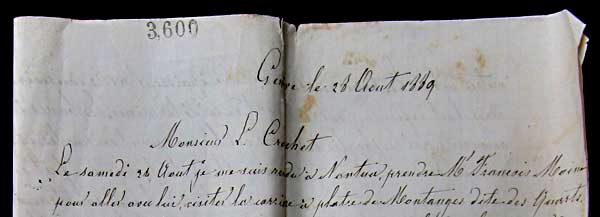 3,600
Genève le 28 Aout 1889
Monsieur L. Crochet
Le samedi 24 Aout je me suis rendu à Nantua, prendre Mr François
pour aller avec lui, visiter la carrière à platre de Montanges dite des Quarts.